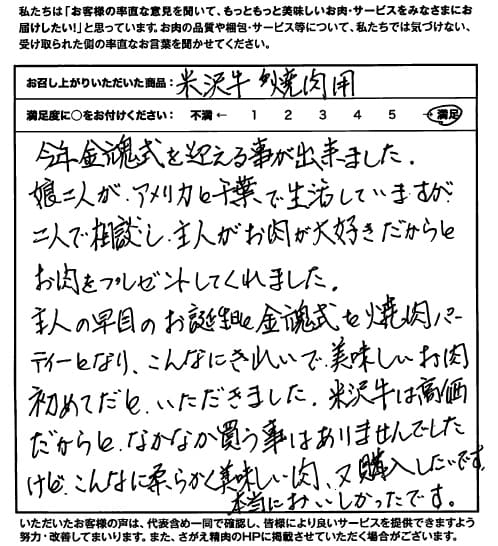 私たちは「お客様の率直な意見を聞いて、もっともっと美味しいお肉・サービスをみなさまにお
届けしたい!」と思っています。お肉の品質や梱包・サービス等について、私たちでは気づけない、
受け取られた側の率直なお言葉を聞かせてください。
お召し上がりいただいた商品: 米沢牛 焼肉用
満足度に○をお付けください: 不満 ← 1 2 3 4 5 → 満足
今年金魂式を迎える事が出来ました。
娘二人が、アメリカと千葉で生活していますが
二人で相談し、主人がお肉が大好きだからと
お肉をプレゼントしてくれました。
主人の早目のお誕生日と金魂式を焼肉パー
ティーとなり、こんなにきれいで美味しいお肉
初めてだと、いただきました。米沢牛は高価
だからと、なかなか買う事はありませんでした
けど、こんなに柔らかく美味しい肉、又購入したいです。
本当においしかったです。
いただいたお客様の声は、代表含め一同で確認し、皆様により良いサービスを提供できますよう
努力・改善してまいります。また、さがえ精肉のHPに掲載させていただく場合がございます。